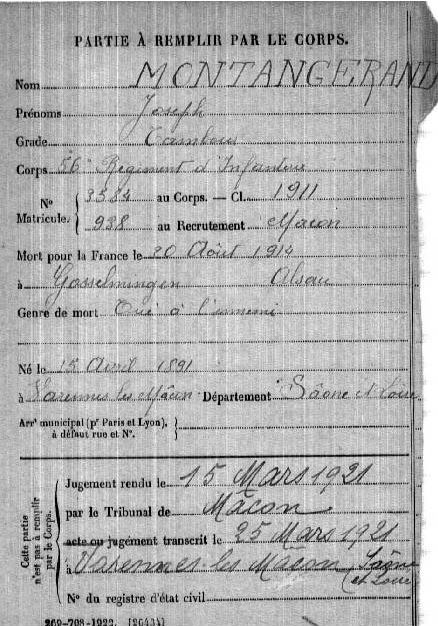 PARTIE À REMPLIR PAR LE CORPS.
Nom MONTANGERAND
Prénoms Joseph
Grade Tambour
Corps 56e Régiment d'Infanterie
N° Matricule. { 3584 au Corps. — Cl. 1911
938 au Recrutement Macon
Mort pour la France le 20 Août 1914
à Gosselmingen Alsace
Genre de mort Tué à l'ennemi
Né le 15 Avril 1891
à Varennes les Mâcon Département Saône et Loire
Arrt municipal (pr Paris et Lyon), à défaut rue et N°. }
Cette partie n'est pas à remplir par le Corps.
Jugement rendu le 15 Mars 1921
par le Tribunal de Mâcon
acte ou jugement transcrit le 25 Mars 1921
à Varennes-les Mâcon Saône et Loire
N° du registre d'état civil
269-708-1922. [26434]